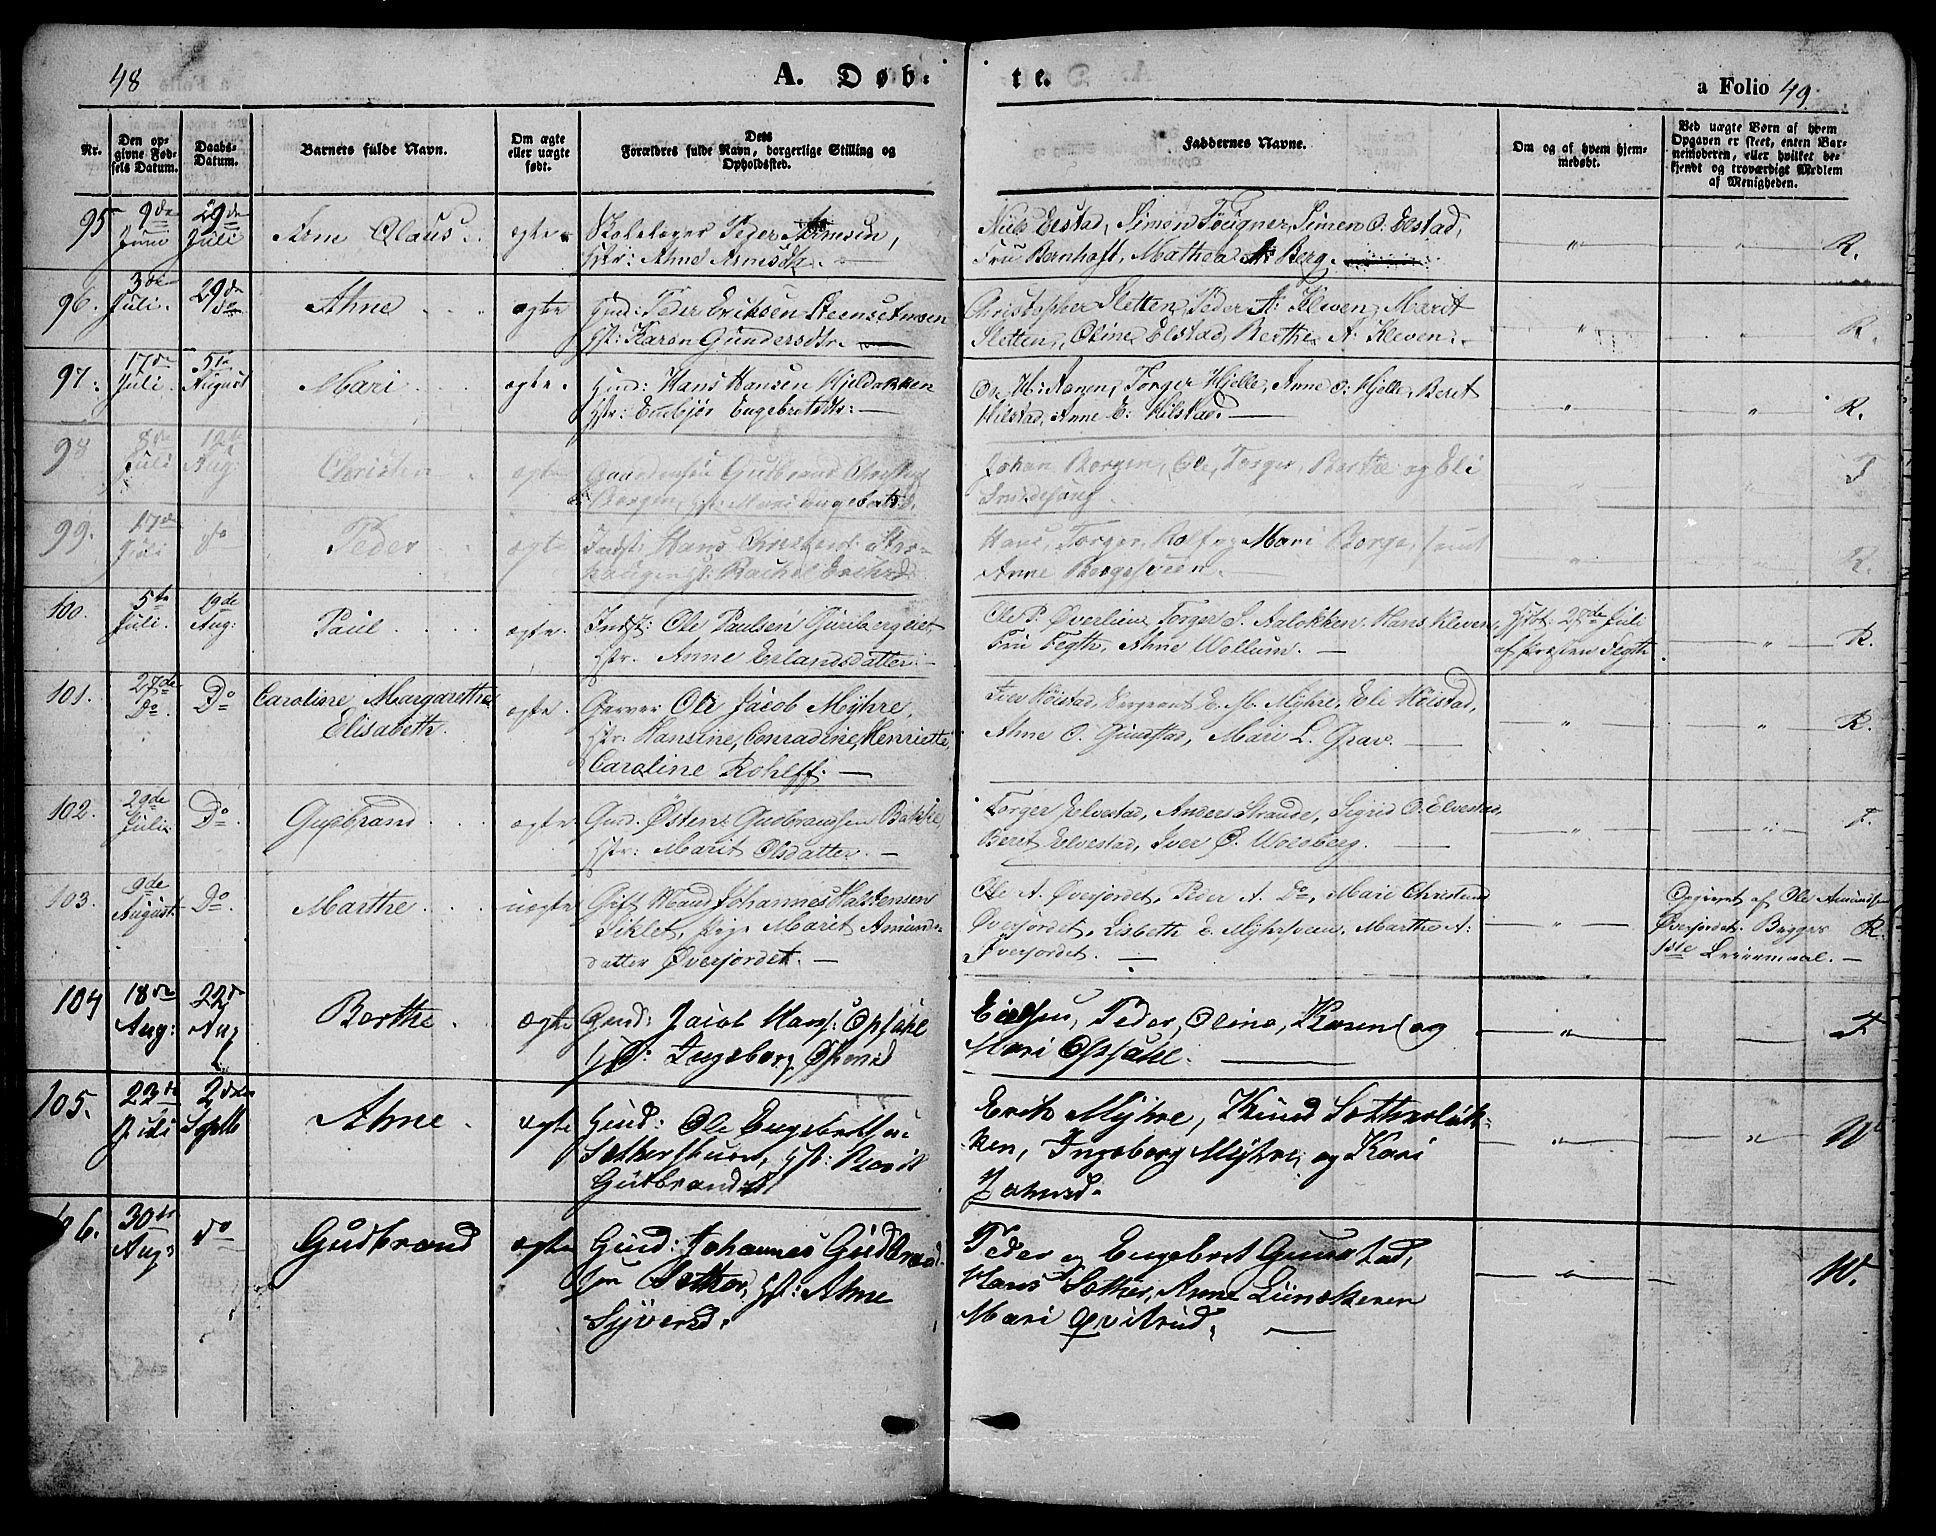 48
A. Døb-
te.
a Folio 49.
Nr.
Den op-
givne Fød-
sels Datum.
Daabs-
Datum.
Barnets fulde Navn.
Om ægte
eller uægte
født.
Dets
Forældres fulde Navn, borgerlige Stilling og
Opholdssted.
Faddernes Navne.
Om og af hvem hjem-
medøbt.
Ved uægte Børn af hvem
Opgaven er skeet, enten Bar-
nemoderen, eller hvilket be-
kjendt og troværdigt Medlem
af Menigheden.
95 9de Juni 29de Juli Arne Claus ægte. Peder
Hstr: Ahne Arnesdtr.
Niels Elstad, Simen Fougner, Simen O. Elstad,
Fru Bernhoft, Mathea Berg.
R.
96. 3de Juli. 29de do Ahne ægte Gmd: Peder Eriksen Steensetmoen
Hst: Karen Gundersdtr.
Christopher Sletten, Peder A: Kleven, Marit
Sletten, Oline Elstad, Berthe A: Kleven.
R.
97. 17de Juli. 5te August Mari ægte. Hans Hansen Hjeldakken
Hstr: Embjør Engebretsdtr:
Ole H: Aanen, Torger Hjelle, Anne O: Hjelle, Beret
Kilstad, Anne E: Kilstad.
R.
98 8de Juli 12te Aug: Christen ægte Gudbrand
Borgen, Hst: Mari Engebretsd.
Johan Borgen, Ole, Torger, Berthe og Eli
99. 17de Juli do Peder ægte Indst: Hans
Rachel
Hans, Torger, Rolf og Mari Borge, samt
Anne Borgesveen.
R.
100. 5te Juli. 19de Aug: Paul ægte. Indst: Ole Paulsen
Hstr. Anne Erlandsdatter.
Ole P. Øverlien, Torger S. Aaløkken, Hans Kleven,
Fru Fegth, Ahne Wollum.
Hjdbt: 27de Juli
af Præsten Fegth.
R.
101. 27de Do. Do Caroline Margarethe
Elisabeth. ægte. Garver Ole Jacob Myhre,
Hstr: Hansine, Conradine, Henriette
Caroline Rohleff.
Iver Høistad, Sergeant E. M. Myhre, Eli Høistad,
Ahne O. Gunstad, Mari L. Grav.
R.
102. 29de Juli. Do. Gudbrand ægte Gmd. Østen Gudbrandsen Bakke,
Hstr: Marit Olsdatter.
Torger Elvestad, Anders Strande, Sigrid O. Elvestad,
Beret Elvestad, Iver O. Wolberg.
F.
103. 9de August. Do. Marthe uægte Gift Mand Johannes Halstensen
Siklet, Pige Marit Amunds-
datter Øverjordet.
Ole A. Øverjordet, Peder A. Do, Mari Christensd
Øverjordet, Lisbeth E. Myhrsveen, Marthe A:
Øverjordet.
Opgivet af Ole Amundsen
Øverjordet. Begges
1ste Leiermaal.
R.
104 18de Aug: 22de Aug Berthe. ægte Gmd: Jacob Hans: Opsahl
Hst: Ingeborg
Peder, Oline, Karen og
Mari Opsahl.
F
105. 23de Juli 2den Septb Ahne. ægte Gmd: Ole Engebretsen
Hst: Marit
Gudbrandsd.
Erik Myhre, Knud Sætherløk-
ken, Ingeborg Myhre, og Kari
Johnsd.
W
106. 30te Aug: do Gudbrand ægte Gmd: Johannes Gudbrand-
sen Sether, Hst: Ahne
Syversd.
Peder og Engebret Gunstad,
Hans Sether, Anne
Mari Qvitrud.
W.